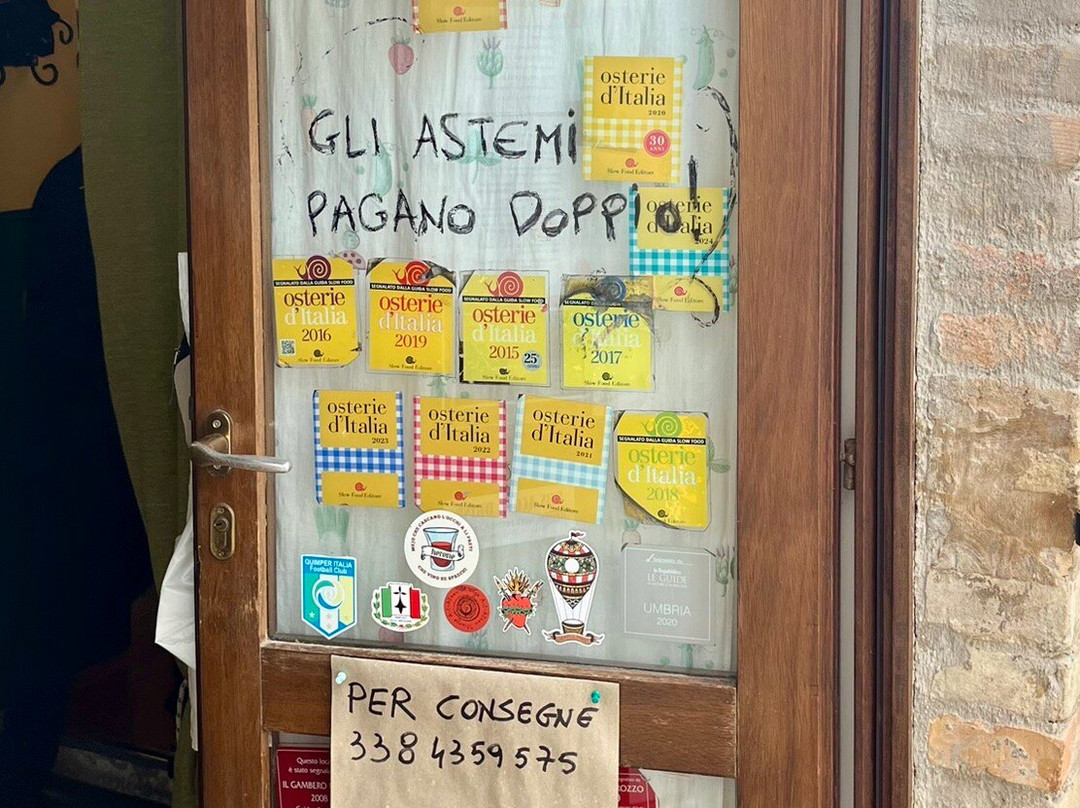 Slow Food Editore
osterie
d'Italia
2020
30
ANNI
Slow Food Editore
GLI ASTEMI
PAGANO DOPPIO!
osterie
d'Italia
2024
Slow Food Editore
SEGNALATO DALLA GUIDA SLOW FOOD
osterie
d'Italia
2016
Slow Food Editore
SEGNALATO DALLA GUIDA SLOW FOOD
osterie
d'Italia
2019
Slow Food Editore
SEGNALATO DALLA GUIDA SLOW FOOD
osterie
d'Italia
2015
25
Slow Food Editore
SEGNALATO DALLA GUIDA SLOW FOOD
osterie
d'Italia
2017
Slow Food Editore
osterie
d'Italia
2023
Slow Food Editore
osterie
d'Italia
2022
Slow Food Editore
osterie
d'Italia
2021
Slow Food Editore
SEGNALATO DALLA GUIDA SLOW FOOD
osterie
d'Italia
2018
Slow Food Editore
MEJO CHE CASCANO L'OCCHI A LI PRETI
CHE VINO SE SPRECHI
QUIMPER ITALIA
Football Club
la Repubblica
LE GUIDE
UMBRIA
2020
PER CONSEGNE
338 4359575
Questo
è stato
IL GAMBERO
2008